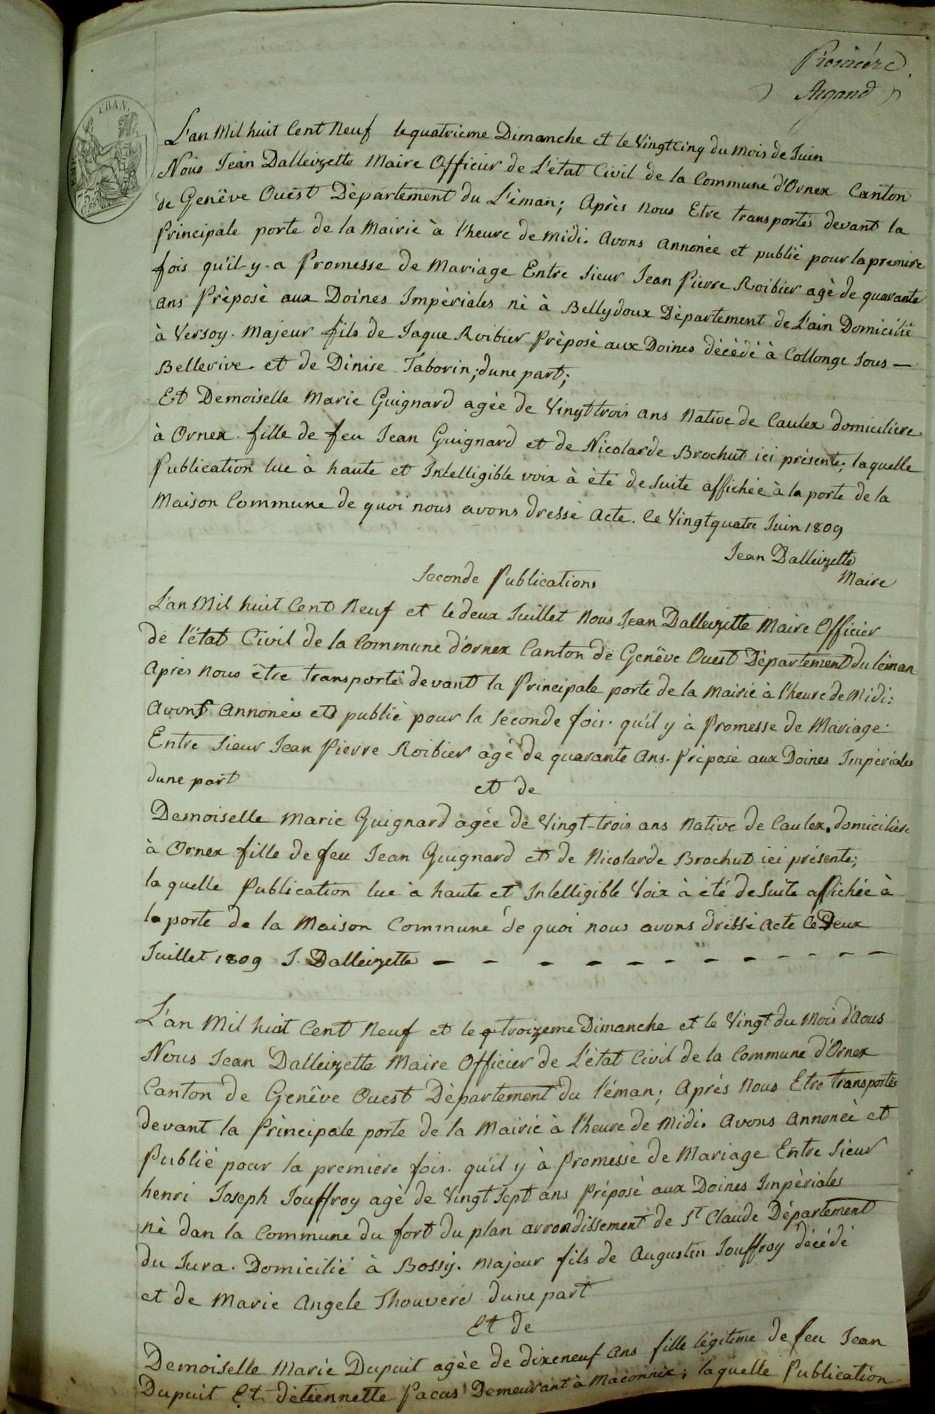 Premiere
Argand
FRAN
L'an Mil huit Cent Neuf le quatrieme Dimanche et le Vingt Cinq du mois de Juin
Nous Jean Dalleizette Maire Officier de L'état Civil de la Commune d'Ornex Canton
de Genêve Ouest Dèpartement du L'éman; Après nous Etre transportés devant la
Principale porte de la Mairie à l'heure de midi. Avons Annonèe et publié pour la premiere
fois qu'il-y-a Promesse de Mariage Entre Sieur Jean Pierre Roibier agè de quarante
ans Prèposè aux Doines Impèriales nè à Bellydoux Dèpartement de L'ain Domiciliè
à Versoy. Majeur fils de Jaque Roibier Prèposè aux Doines dècèdè à Collonge Sous —
Bellerive. et de Dinise Taborin; dune part;
Et Demoiselle Marie Guignard agèe de Vingt trois ans Native de Caulex domicilière
à Ornex. fille de feu Jean Guignard et de Nicolarde Brochut ici présente; laquelle
Publication lue à haute et Intelligible voix à ète de Suite affichée à la porte de la
Maison Commune de quoi nous avons dressé Acte. Ce Vingt quatre Juin 1809
Jean Dalleizette
Maire
Seconde Publications
L'an Mil huit Cent Neuf et le deux Juillet Nous Jean Dalleizette Maire Officier
de l'état Civil de la Commune d'Ornex Canton de Genêve Ouest Dèpartement du léman
Après nous être transporté devant la Principale porte de la Mairie à l'heure de Midi:
Avons Annonèe et publié pour la Seconde fois. qu'il y à Promesse de Mariage.
Entre Sieur Jean Pierre Roibier agè de quarante Ans. Prèposé aux Doines Impèriales
dune part
et de
Demoiselle Marie Guignard agèe de Vingt-trois ans Native de Caulex. domicilière
à Ornex fille de feu Jean Guignard et de Nicolarde Brochut ici présente;
la quelle Publication lue à haute et Intelligible Voix à été de Suite affichée à
la porte de la Maison Commune de quoi nous avons dressé Acte Ce Deux
Juillet 1809 J. Dalleizette — — — — — — — — — — — —
L'an Mil huit Cent Neuf et le troizeme Dimanche et le Vingt du Mois d'Aous
Nous Jean Dalleizette Maire Officier de L'état Civil de la Commune d'Ornex
Canton de Genêve Ouest Dèpartement du l'éman; Après Nous Etre transportés
devant la Principale porte de la Mairié à l'heure de Midi. Avons Annoneè et
Publié pour la premiere fois. qu'il y à Promesse de Mariage Entre Sieur
henri Joseph Jouffroy agè de Vingt Sept ans Préposé aux Doines Impèriales
nè dan la Commune du fort du plan arrondissement de St. Claude Département
du Jura. Domicilié à Bossy. Majeur fils de Augustin Jouffroy décèdé
et de Marie Angele Thouveré dune part
Et de
Demoiselle Marie Dupuit agèe de dixeneuf Ans fille légitime de feu Jean
Dupuit Et détiennette Pacas Demeurant à Maconnix; laquelle Publication